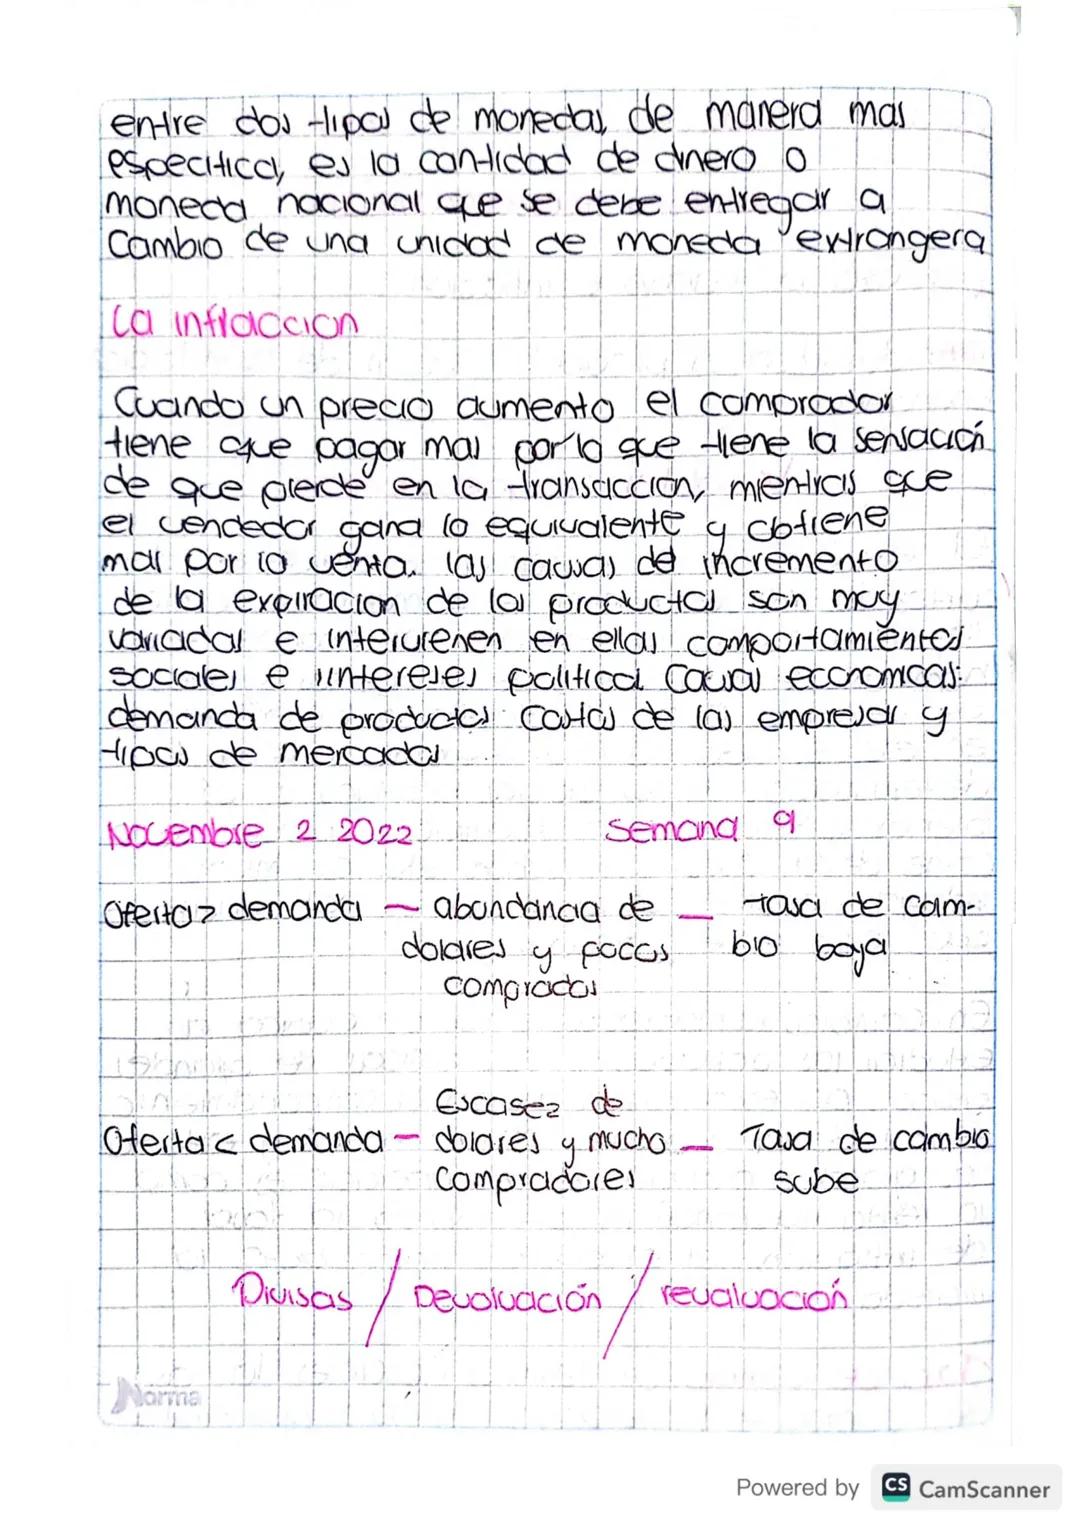 entre dos tipos de monedas, de manera mas
especifica, es la cantidad de dinero o
moneda nacional que se debe entregar a
Cambio de una unidad de moneda extrangera
La inflaccion
Cuando un precio aumento el comprador
tiene que pagar mas por lo que tiene la sensación
de que pierde en la transaccion, mientras que
el vendedor gana lo equivalente y obtiene
mas por la venta. las causas de incremento
de la expiracion de los productos son muy
variadas e intervienen en ellas comportamientos
sociales e iintereses politicos Causas economicas:
demanda de productos Costos de las empresas y
tipos de mercados
Noviembre 2 2022 Semana 9
Oferta > demanda - abundancia de - tasa de cam-
dolares y pocos bio baja
comprados
Escasez de
Oferta < demanda - dolares y mucho - Tasa de cambio
Compradores sube
Divisas / Devaluación / revaluación
Norma
Powered by CS CamScanner